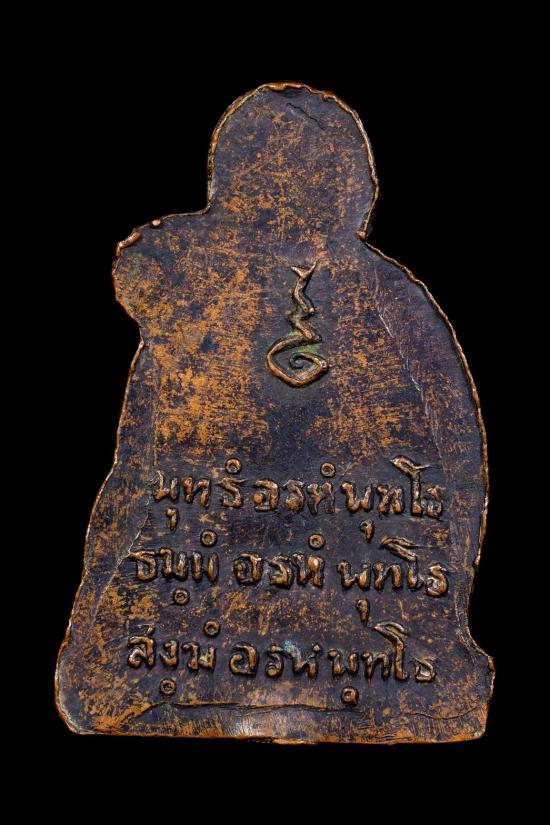 พุทธํอรหํพุทโธ
ธมฺมํ อรหํ พุทโธ
สงฺฆํ อรหพุทโธ